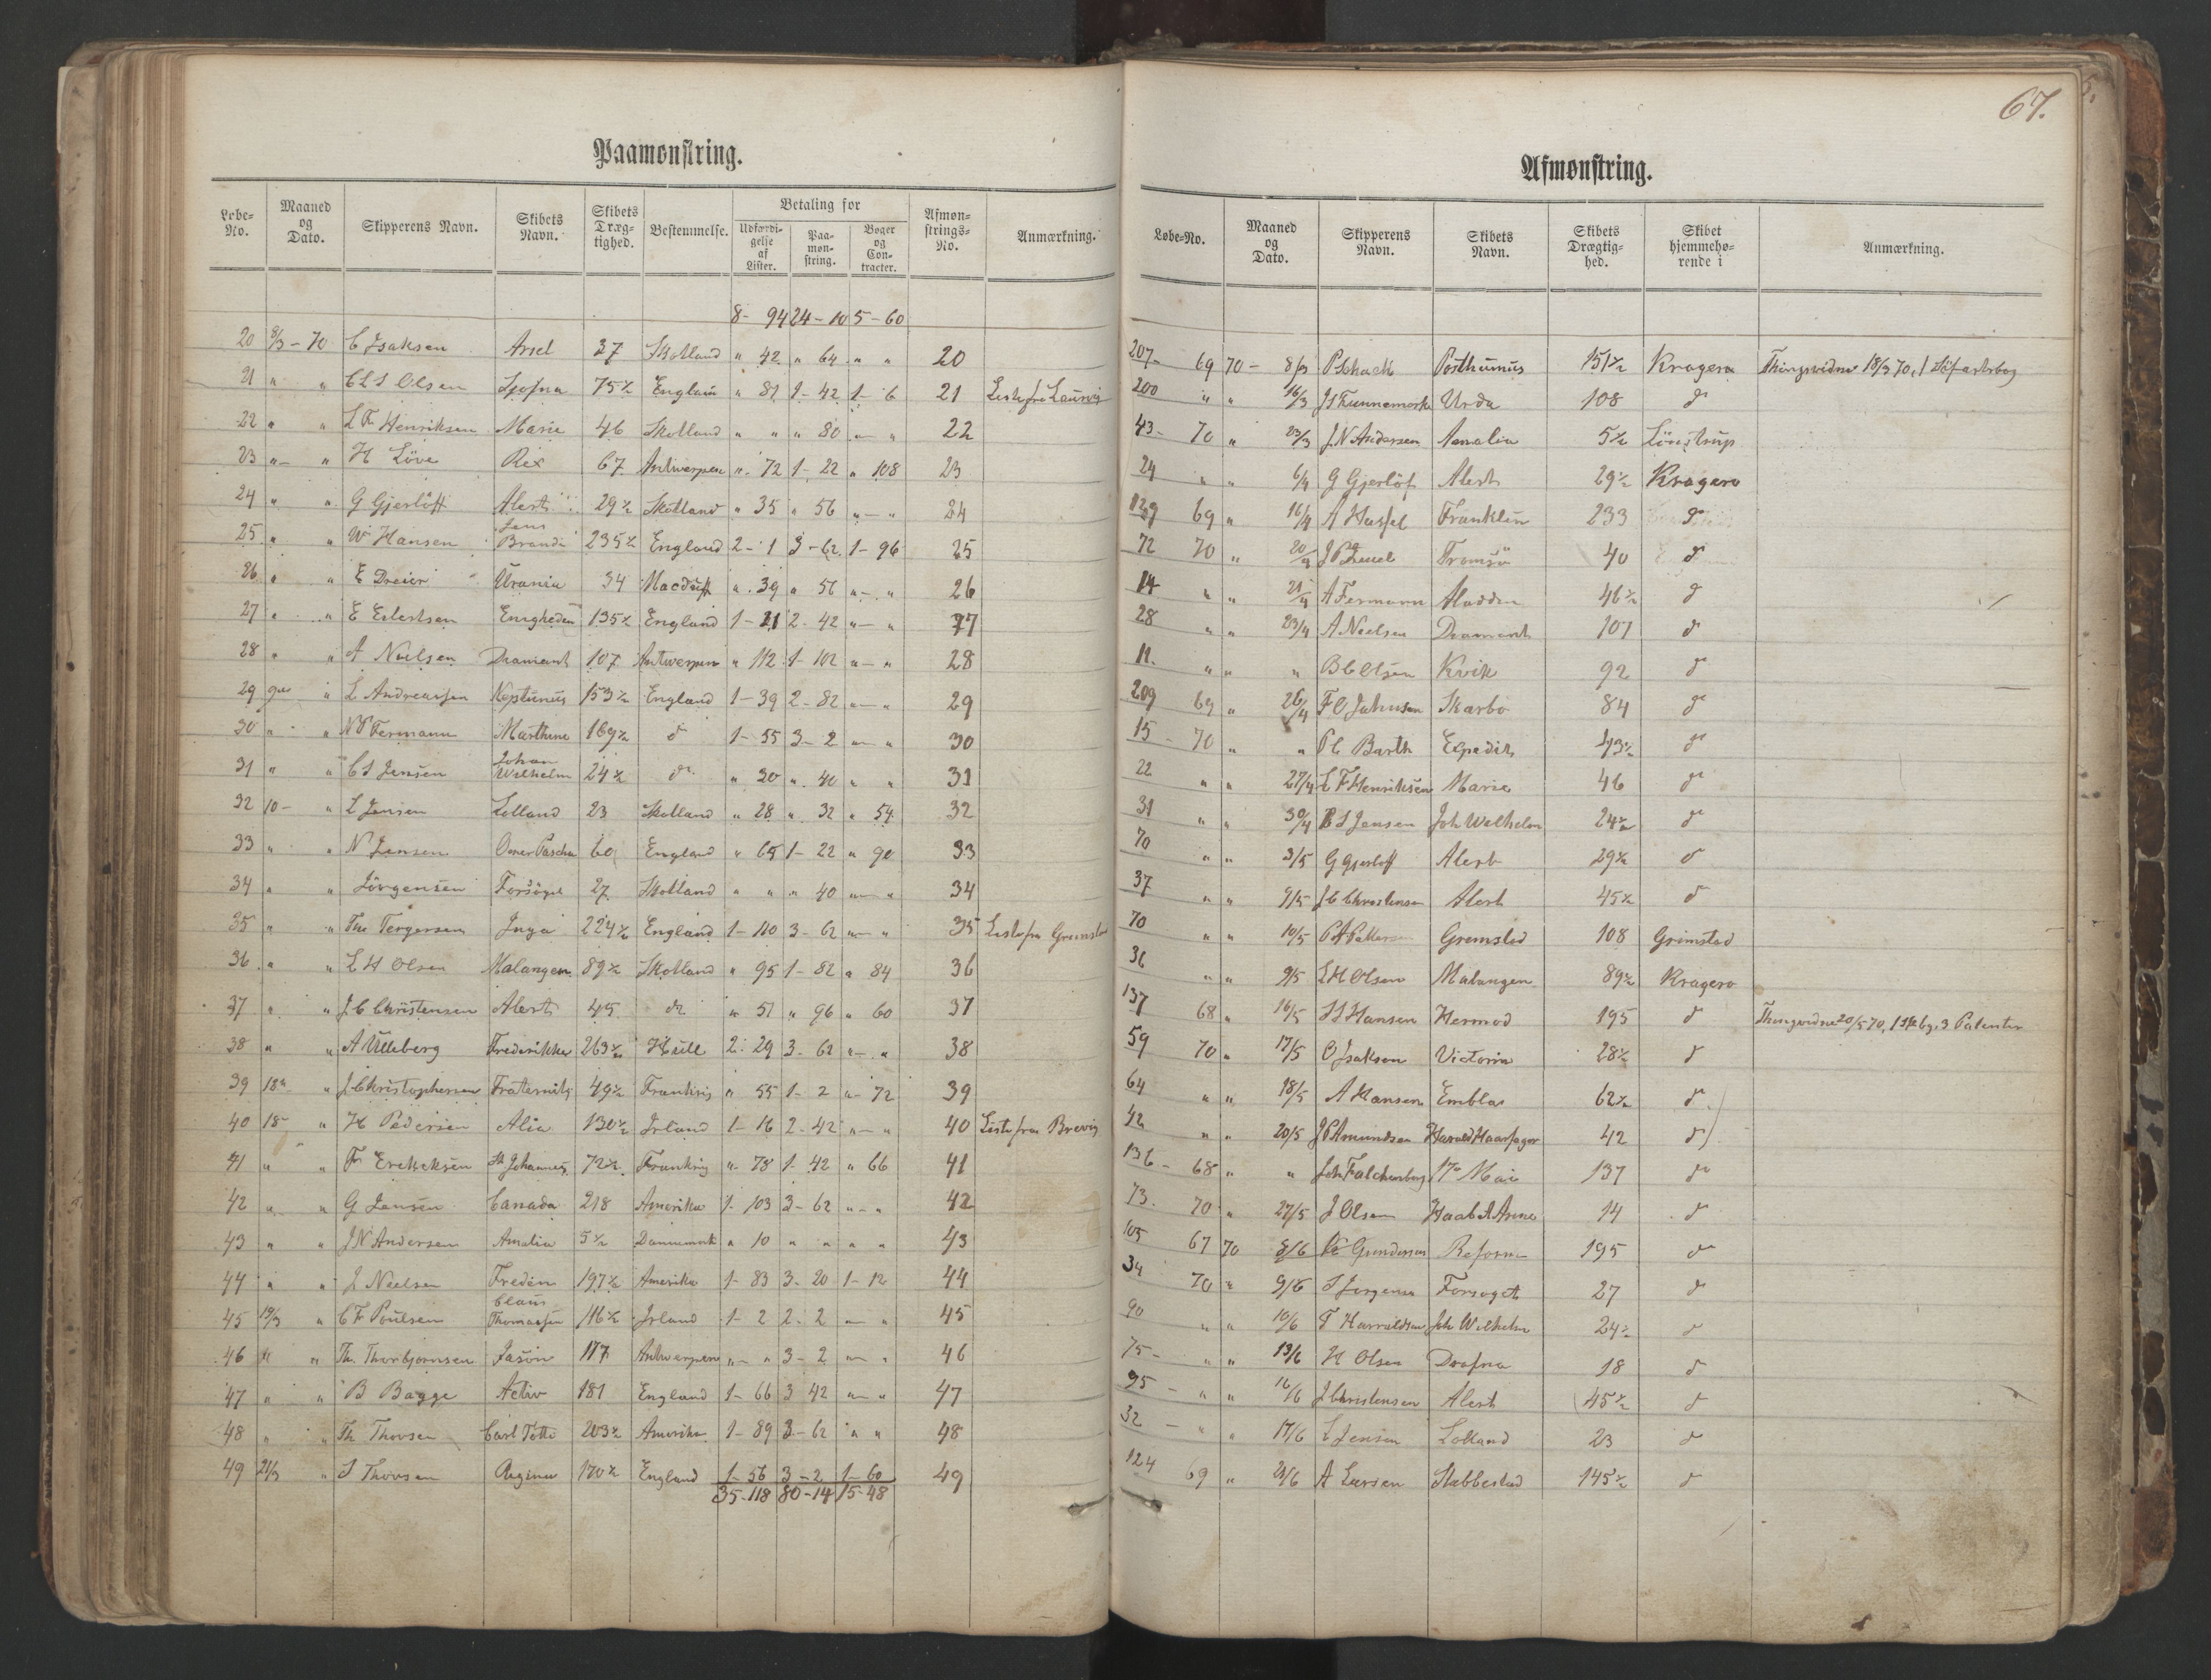 67.
Paamønstring.
Løbe-No. Maaned og Dato. Skipperens Navn. Skibets Navn. Skibets Dræg-tighed. Bestemmelse. Betaling for Udfærdi-gelse af Lister. Paa-møn-string. Bøger og Con-tracter. Afmøn-strings-No. Anmærkning.
8- 94 24-10 5-60
20 8/3-70 C Isaksen Arsel 37 Skotland " 42 " 64 " " 20
21 " " Olsen 75½ England " 81 1-42 1-6 21 Liste fra Laurvig
22 " " L F Henriksen Marie 46 Skotland " " " 80 " " 22
23 " " H Löve Rex 67 Antwerpen " 72 1-22 " 108 23
24 " " G Gjerlöff Alert 29½ Skotland " 35 " 56 " " 24
25 " " W Hansen Jens Brandi 235½ England 2-1 3-62 1-96 25
26 " " E Dreier Urania 34 Macduff " 39 " 56 " " 26
27 " " E Eilertsen Enigheden 135½ England 1-21 2-42 " " 27
28 " " A Nielsen Diamant 107 Antwerpen " 112 1-102 " " 28
29 " L Andreassen Neptunus 153½ England 1-39 2-82 " " 29
30 " " N P Fermann Marthine 169½ do 1-55 3-2 " " 30
31 " " C S Jensen Johan Wilhelm 24½ do " 30 " 40 " " 31
32 10- " L Jensen Lolland 23 Skotland " 28 " 32 " 54 32
33 " " N Jensen Omer Pascha 60 England " 65 1-22 " 90 33
34 " " Jörgensen Forsöget 27 Skotland " " " 40 " " 34
35 " " Tho Tergersen Inga 224½ England 1-110 3-62 " " 35 Liste fra Grimstad
36 " " L H Olsen Malangen 89½ Skotland " 95 1-82 " 84 36
37 " " J C Christensen Alert 45 do " 51 " 96 " 60 37
38 " " A Ulleberg Frederikke 263½ Hull 2-29 3-62 " " 38
39 18 " J Christophersen Fraternité 49½ Frankrig " 55 1-2 " 72 39
40 18- " H Pedersen Alia 130½ Irland 1-16 2-42 " " 40 Liste fra Brevig
41 " " Fr Ereksen St Johannes 72½ Frankrig " 78 1-42 " 66 41
42 " " G Jensen Canada 218 Amerika 1-103 3-62 " " 42
43 " " J N Andersen Amalia 5½ Dannemark " 10 " " " " 43
44 " " J Nielsen Freden 197½ Amerika 1-83 3-20 1-12 44
45 19/3 " C F Poulsen Claus Thomassen 116½ Irland 1-2 2-2 " " 45
46 " " Th. Thorbjørnsen Jason 177 Antwerpen " " 3-2 " " 46
47 " " B Bagge Activ 181 England 1-66 3 42 " " 47
48 " " Th Thorsen Carl Totti 203½ Amerika 1-89 3-62 " " 48
49 21/3 " S Thorsen Regina 170½ England 1-56 3-2 1-60 49
35-118 80-14 15-48
Afmønstring.
Løbe-No. Maaned og Dato. Skipperens Navn. Skibets Navn. Skibets Drægtig-hed. Skibet hjemmehø-rende i Anmærkning.
207- 69 70- 8/3 P Schack Posthumus 151½ Kragerø Thingsvidne 18/3 70, 1 Söfartsbog
200 " " 16/3 J S Funnemark Urda 108 do
43- 70 " 23/3 J N Andersen Amalia 5½ Lönstrup
24 " " 6/4 G Gjerlöf Alert 29½ Kragerø
129 69 " 16/4 A Hassel Franklin 233 do
72 70 " 20/4 Tromsö 40 do
14 " " 21/4 A Fermann Aladdin 46½ do
28 " " 23/4 A Nielsen Diamant 107 do
11. " " " B C Olsen Kvik 92 do
209 69 " 26/4 F O Johnsen Skarbo 84 do
15- 70 " " P C Barth Expedit 43½ do
22 " " 27/4 L F Henriksen Marie 46 do
31 " " 30/4 C S Jensen Joh Wilhelm 24½ do
70 " " 3/5 G Gjerløff Alert 29½ do
37 " " 9/5 J C Christensen Alert 45½ do
70 " " 10/5 Grimstad 108 Grimstad
36 " " 9/5 L H Olsen Malangen 89½ Kragerø
137 68 " 16/5 S S Hansen Hermod 195 do Thingsvidne 20/5 70, 3 Patenter
59 70 " 17/5 O Isaksen Victoria 28½ do
64 " " 18/5 A Hansen Embla 62½ do
42 " " 20/5 J P Amundsen Harald Haarfager 42 do
136- 68 " " Joh Falchenberg 17de Mai 137 do
73. 70 " 27/5 J Olsen Haabet Anna 14 do
105 67 70 8/6 Gundersen Reform 195 do
34 70 " 9/6 S Jorgensen Forsøget 27 do
90 " " 10/6 T Harraldsen Joh Wilhelm 24½ do
75- " " 13/6 H Olsen Drafna 18 do
95- " " 16/6 J Christensen Alert 45½ do
32- " " 17/6 L Jensen Lolland 23 do
124 69 " 21/6 A Larsen Stabbestad 145½ do